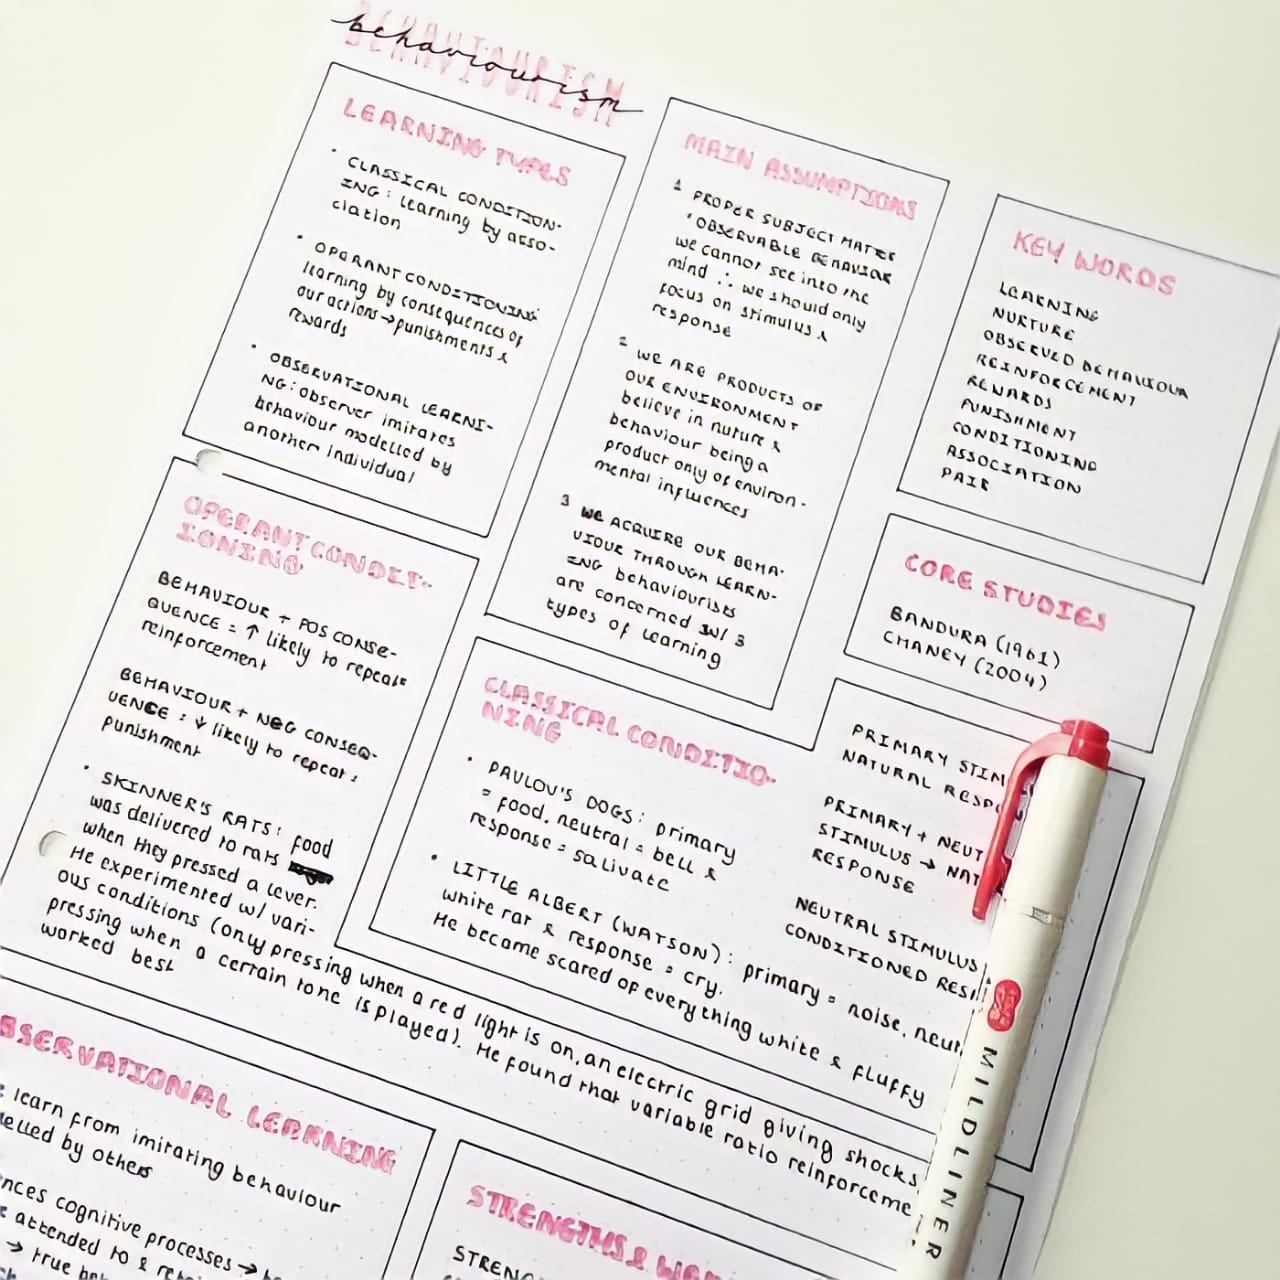 behaviourism
BEHAVIOURISM
LEARNING TYPES
• CLASSICAL CONDITION-
ING: learning by asso-
ciation
• OPERANT CONDITIONING:
learning by consequences of
our actions → punishments &
rewards
• OBSERVATIONAL LEARNI-
NG: observer imitates
behaviour modelled by
another individual
MAIN ASSUMPTIONS
1 PROPER SUBJECT MATTER
"OBSERVABLE BEHAVIOUR
we cannot see into the
mind ∴ we should only
focus on stimulus &
response
2 WE ARE PRODUCTS OF
OUR ENVIRONMENT
believe in nuture &
behaviour being a
product only of environ-
mental influences
3 WE ACQUIRE OUR BEHA-
VIOUR THROUGH LEARN-
ING behaviourists
are concerned w/ 3
types of learning
KEY WORDS
LEARNING
NURTURE
OBSERVED BEHAVIOUR
REINFORCEMENT
REWARDS
PUNISHMENT
CONDITIONING
ASSOCIATION
PAIR
CORE STUDIES
BANDURA (1961)
CHANEY (2004)
OPERANT CONDIT-
IONING
BEHAVIOUR + POS CONSE-
QUENCE = ↑ likely to repeat =
reinforcement
BEHAVIOUR + NEG CONSEQ-
UENCE = ↓ likely to repeat =
punishment
• SKINNER'S RATS: food
was delivered to rats
when they pressed a lever.
He experimented w/ vari-
ous conditions (only pressing when a red light is on, an electric grid giving shocks
pressing when a certain tone is played). He found that variable ratio reinforceme
worked best
CLASSICAL CONDITIO-
NING
• PAVLOV'S DOGS: primary
= food, neutral = bell &
response = salivate
• LITTLE ALBERT (WATSON): primary = noise, neut
white rat & response = cry.
He became scared of everything white & fluffy
PRIMARY STIM
NATURAL RESPO
PRIMARY + NEUT
STIMULUS → NAT
RESPONSE
NEUTRAL STIMULUS
CONDITIONED RES
MILDLINER
BSERVATIONAL LEARNING
learn from imitating behaviour
elled by others
nces cognitive processes →
attended to &
→ true
STRENGTHS &
STRENG